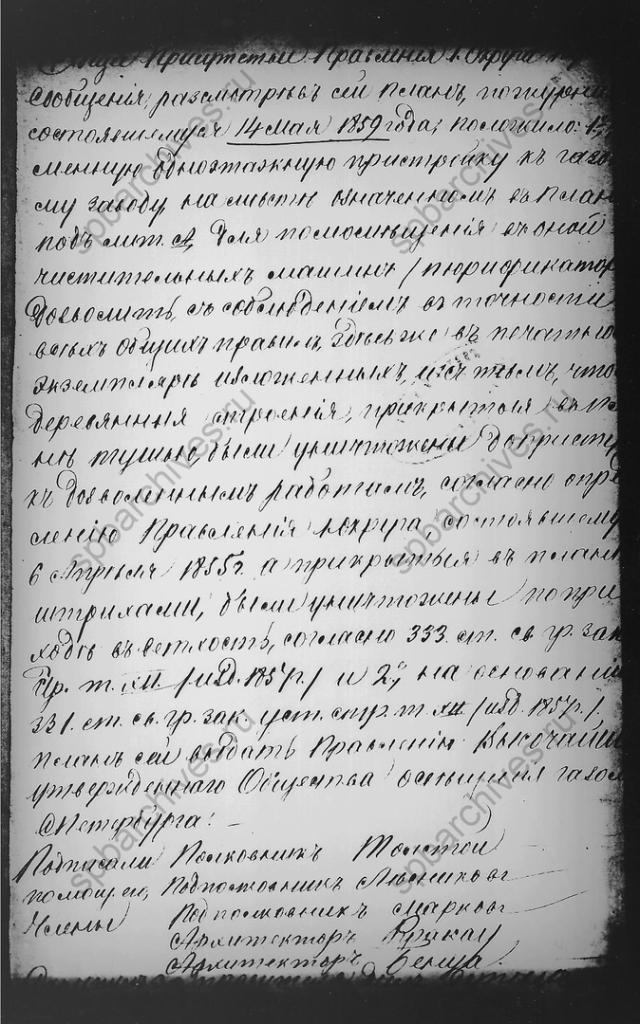 Общее Присутствіе Правленія I. Округа
Сообщенія, разсмотрѣвъ сей планъ, по журналу
состоявшемуся 14 мая 1859 года, положило: 1е,
менную одноэтажную пристройку къ газо
му заводу на мѣстѣ означенномъ въ планѣ
подъ лит. А, для помѣщенія въ оной
чистительныхъ машинъ / пюрификатор
дозволить, съ соблюденіемъ въ точности
всѣхъ общихъ правилъ, здѣсь же въ печатно
экземплярѣ изложенныхъ, и съ тѣмъ, что
деревянныя строенія, прикрытыя въ пла
нѣ тушью, были уничтожены до присту
къ дозволеннымъ работамъ, согласно опре
ленію Правленія I округа, состоявшему
6 Апрѣля 1855 г. а прикрытыя въ планѣ
штрихами, были уничтожены по при
ходѣ въ ветхость, согласно 333. ст. св. гр. зак.
т. XII /изд. 1857 г./ и 2е, на основаніи
331. ст. св. гр. зак. уст. стр. т. XII /изд. 1857 г./.
планъ сей выдать Правленію Высочайше
утвержденнаго Общества освѣщенія газом
СПетербурга: —
Подписали Полковникъ Толстой
помощ. Подполковникъ
Члены Подполковникъ Марковъ
Архитекторъ
Архитекторъ Бенуа.